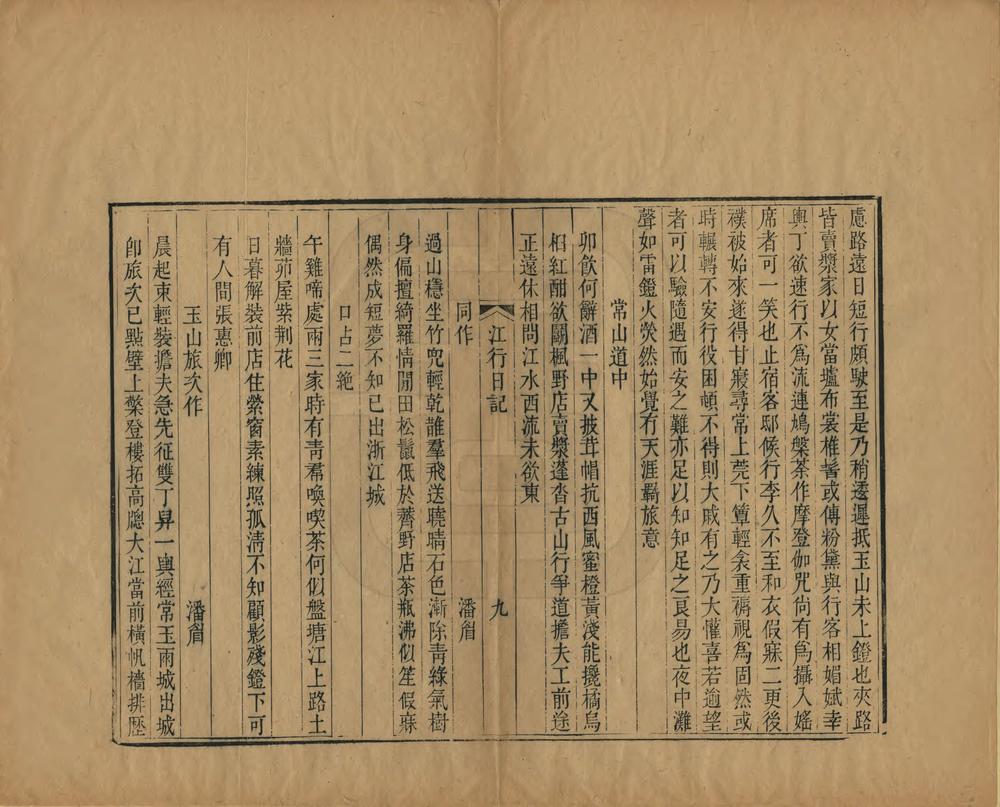 慮路遠日短行頗駛至是乃稍逶遲抵玉山未上鐙也夾路
皆賣漿家以女當壚布裳椎髻或傅粉黛與行客相媚娬幸
輿丁欲速行不爲流連鳩槃荼作摩登伽咒尙有爲攝入媱
席者可一笑也止宿客邸候行李久不至和衣假寐二更後
襆被始來遂得甘寢尋常上莞下簟輕衾重褥視爲固然或
時輾轉不安行役困頓不得則大戚有之乃大懽喜若逾望
者可以驗隨遇而安之難亦足以知知足之良易也夜中灘
聲如雷鐙火熒然始覺有天涯羇旅意
常山道中
卯飲何辭酒一中又披茸帽抗西風蜜橙黃淺能攙橘烏
桕紅酣欲鬬楓野店賣漿蓬沓古山行爭道擔夫工前途
正遠休相問江水西流未欲東
江行日記 九
同作 潘眉
過山穩坐竹兜輕乾誰羣飛送曉晴石色漸除靑綠氣樹
身偏擅綺羅情閒田松鬣低於薺野店茶瓶沸似笙假寐
偶然成短夢不知已出浙江城
口占二絶
午雞啼處雨三家時有靑帬喚喫茶何似盤塘江上路土
牆茆屋紫荆花
日暮解裝前店住縈窗素練照孤淸不知顧影殘鐙下可
有人間張惠卿
玉山旅次作 潘眉
晨起束輕裝擔夫急先征雙丁昇一輿經常玉兩城出城
卽旅次已點壁上檠登樓拓高牕大江當前橫帆檣排歷